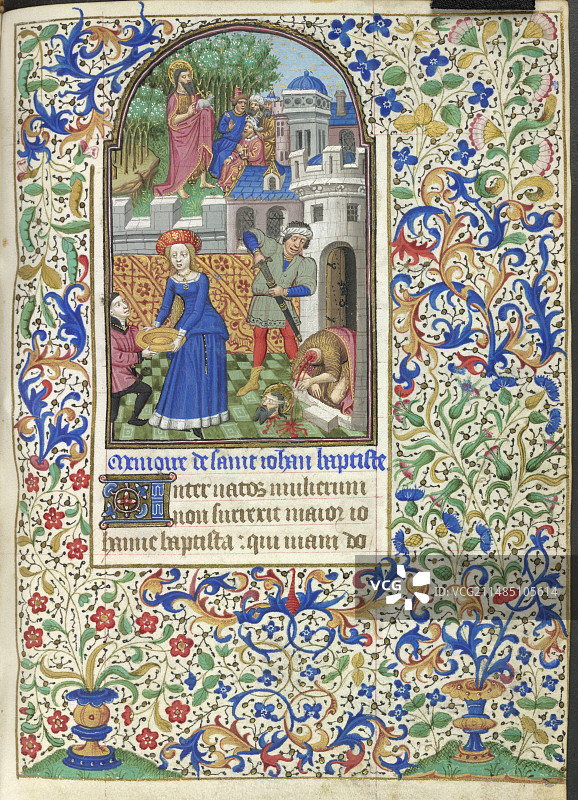 Memoire de saint iohan baptiste
Inter natos mulierum
non surrexit maior io
hanne baptista : qui viam do
VCG
ID:VCG211485105614